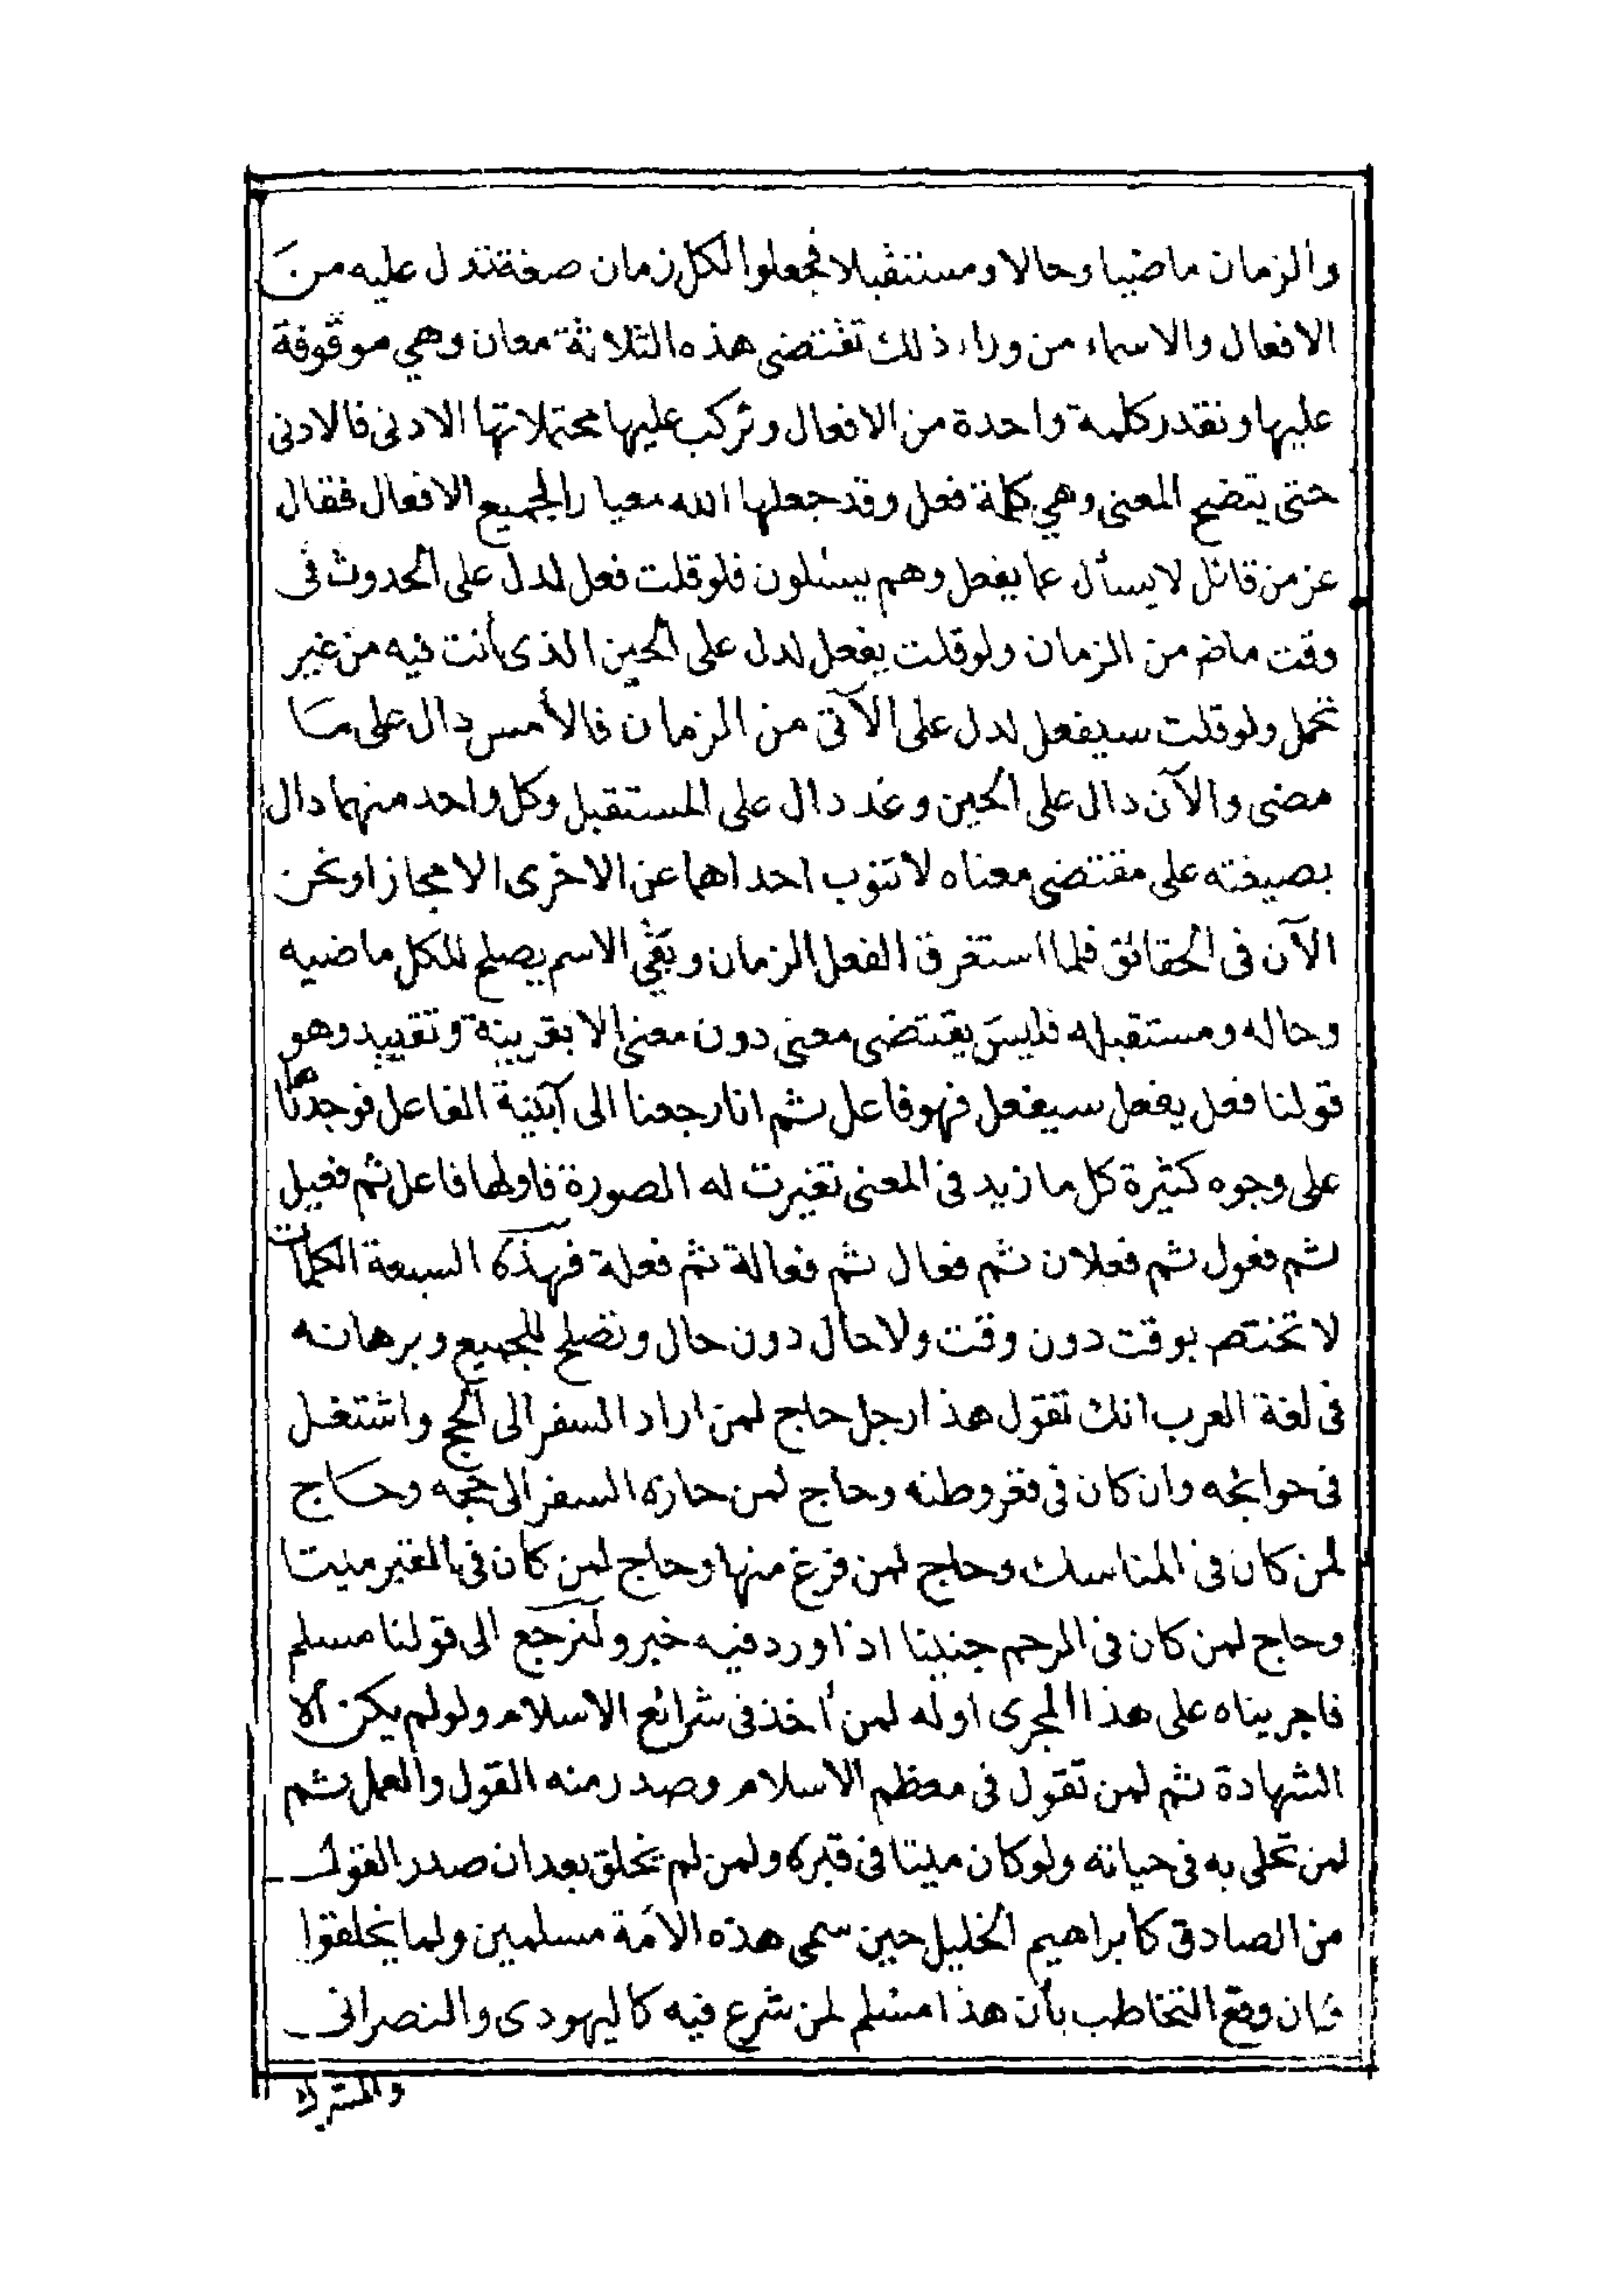 والزمان ماضيا وحالا ومستقبلا فجعلوا لكل زمان صغة تدل عليه من
الافعال والاسماء من وراء ذلك تقتضى هذه الثلاثة معان وهي موقوفة
عليها ونقدر كلمة واحدة من الافعال ونركب عليها محتملاتها الادنى فالادنى
حتى يتضح المعنى وهي كلمة فعل وقد جعلها الله معيارا لجميع الافعال فقال
عز من قائل لا يسأل عما يفعل وهم يسئلون فلو قلت فعل لدل على الحدوث فى
وقت ماض من الزمان ولو قلت يفعل لدل على الحين الذى أنت فيه من غير
تحمل ولو قلت سيفعل لدل على الآتى من الزمان فالأمس دال على ما
مضى والآن دال على الحين وغد دال على المستقبل وكل واحد منهما دال
بصيغته على مقتضى معناه لا تنوب احداهما عن الاخرى الا مجازا ونحن
الآن فى الحقائق فلما استغرق الفعل الزمان وبقي الاسم يصلح للكل ماضيه
وحاله ومستقبله فليس يقتضى معنى دون معنى الا بقرينة وتقييد وهو
قولنا فعل يفعل سيفعل فهو فاعل ثم انا رجعنا الى أبنية الفاعل فوجدناها
على وجوه كثيرة كل ما زيد فى المعنى تغيرت له الصورة فاولها فاعل ثم فعيل
ثم فعول ثم فعلان ثم فعال ثم فعالة ثم فعلة فهذه السبعة الكلمات
لا تختص بوقت دون وقت ولا حال دون حال وتصلح للجميع وبرهانه
فى لغة العرب انك تقول هذا رجل حاج لمن اراد السفر الى الحج واشتغل
فى حوائجه وان كان فى قعر وطنه وحاج لمن حازه السفر الى حجه وحاج
لمن كان فى المناسك وحاج لمن فرغ منها وحاج لمن كان فى القبر ميتا
وحاج لمن كان فى الرحم جنينا اذا ورد فيه خبر ولنرجع الى قولنا مسلم
فاجريناه على هذا المجرى اوله لمن أخذ فى شرائع الاسلام ولو لم يكن الا
الشهادة ثم لمن تقول فى معظم الاسلام وصدر منه القول والعمل ثم
لمن تحلى به فى حياته ولو كان ميتا فى قبره ولمن لم يخلق بعد ان صدر القول
من الصادق كابراهيم الخليل حين سمى هذه الأمة مسلمين ولما يخلقوا
فان وقع التخاطب بأن هذا مسلم لمن شرع فيه كاليهودى والنصرانى
والمشرك